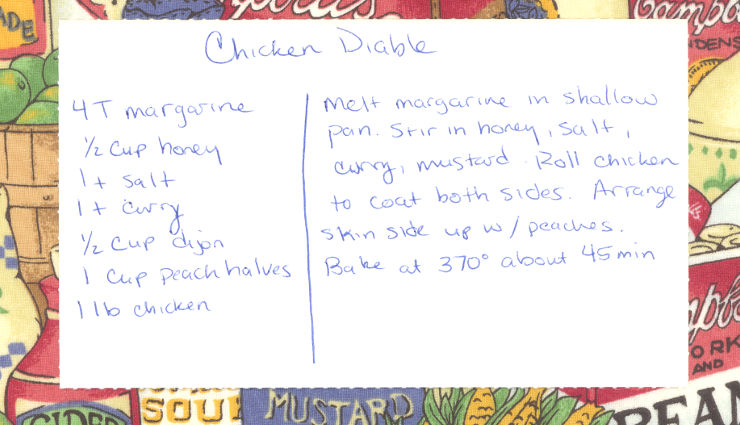 Chicken Diable
4 T margarine
½ cup honey
1 t salt
1 t curry
½ cup dijon
1 cup peach halves
1 lb chicken
Melt margarine in shallow
pan. Stir in honey, salt,
curry, mustard. Roll chicken
to coat both sides. Arrange
skin side up w/peaches.
Bake at 370° about 45 min
ADE
Campb
DENS
CIDER
SOU
MUSTARD
mpb
ORK
AND
BEAN